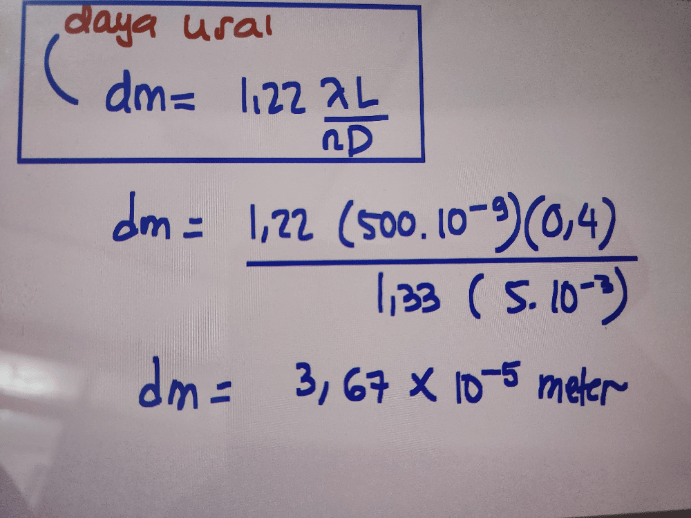 daya urai
dm = 1,22 λL / nD
dm = 1,22 (500.10⁻⁹)(0,4) / 1,33 (5.10⁻³)
dm = 3,67 × 10⁻⁵ meter